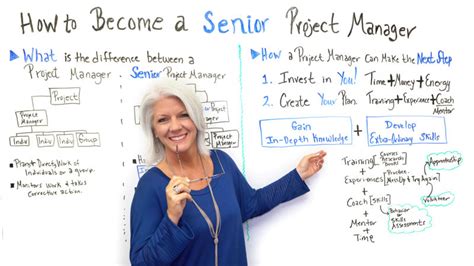 How to Become a Senior Project Manager
What is the difference between a
Project Manager
Senior Project Manager
Project
Project
Manager
Indiv
Indiv
Group
Individuals or a group.
Monitors Work & takes
Corrective action.
How a Project Manager Can Make the Next Step
1. Invest in You! Time + Money + Energy
2. Create Your Plan. Training + Experience + Coach
Mentor
Gain
In-Depth Knowledge
+
Develop
Extra-Ordinary Skills
Training
Courses
Research
Books
Apprenticeship
+
Experiences
+
Coach [Skills]
Behavior
or
Skills
Assessments
Volunteer
+
Mentor
+
Time